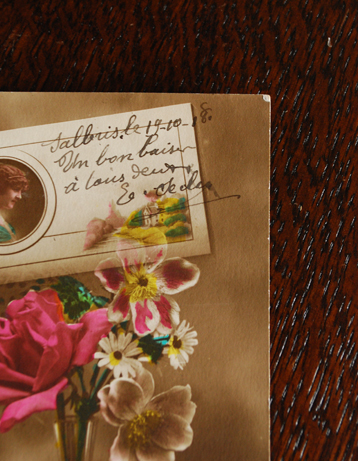 Salbris, le 19-10-18.
Un bon baiser
à tous deux